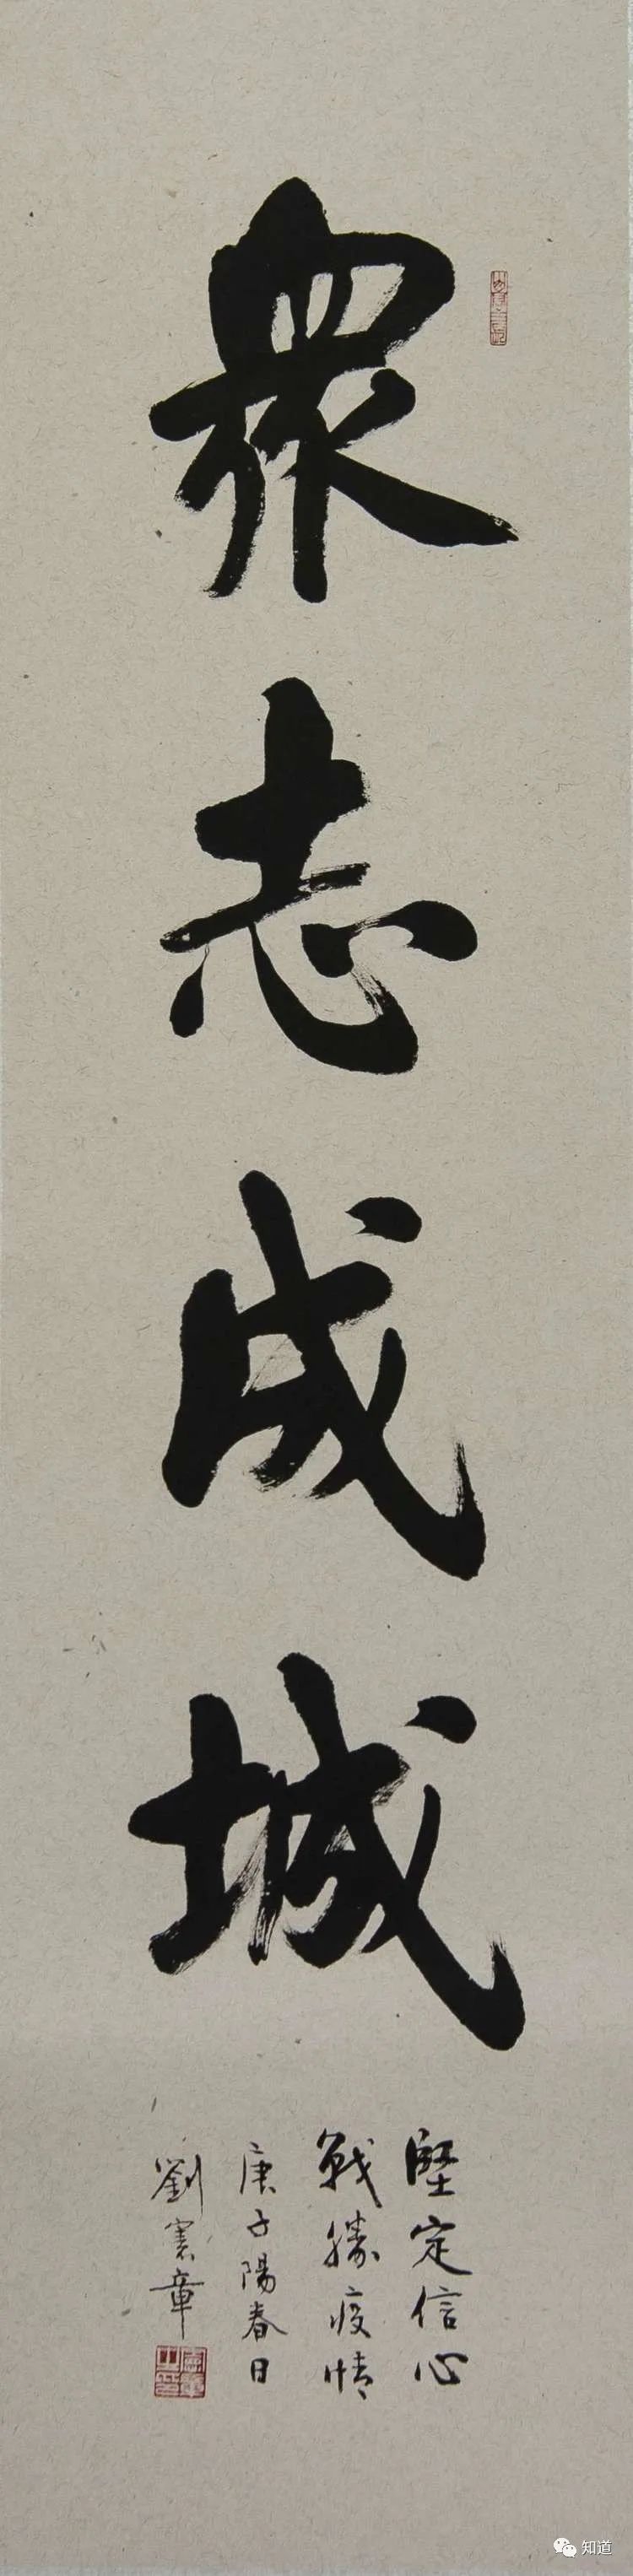 眾志成城
堅定信心
戰勝疫情
庚子陽春日
劉憲章
知道